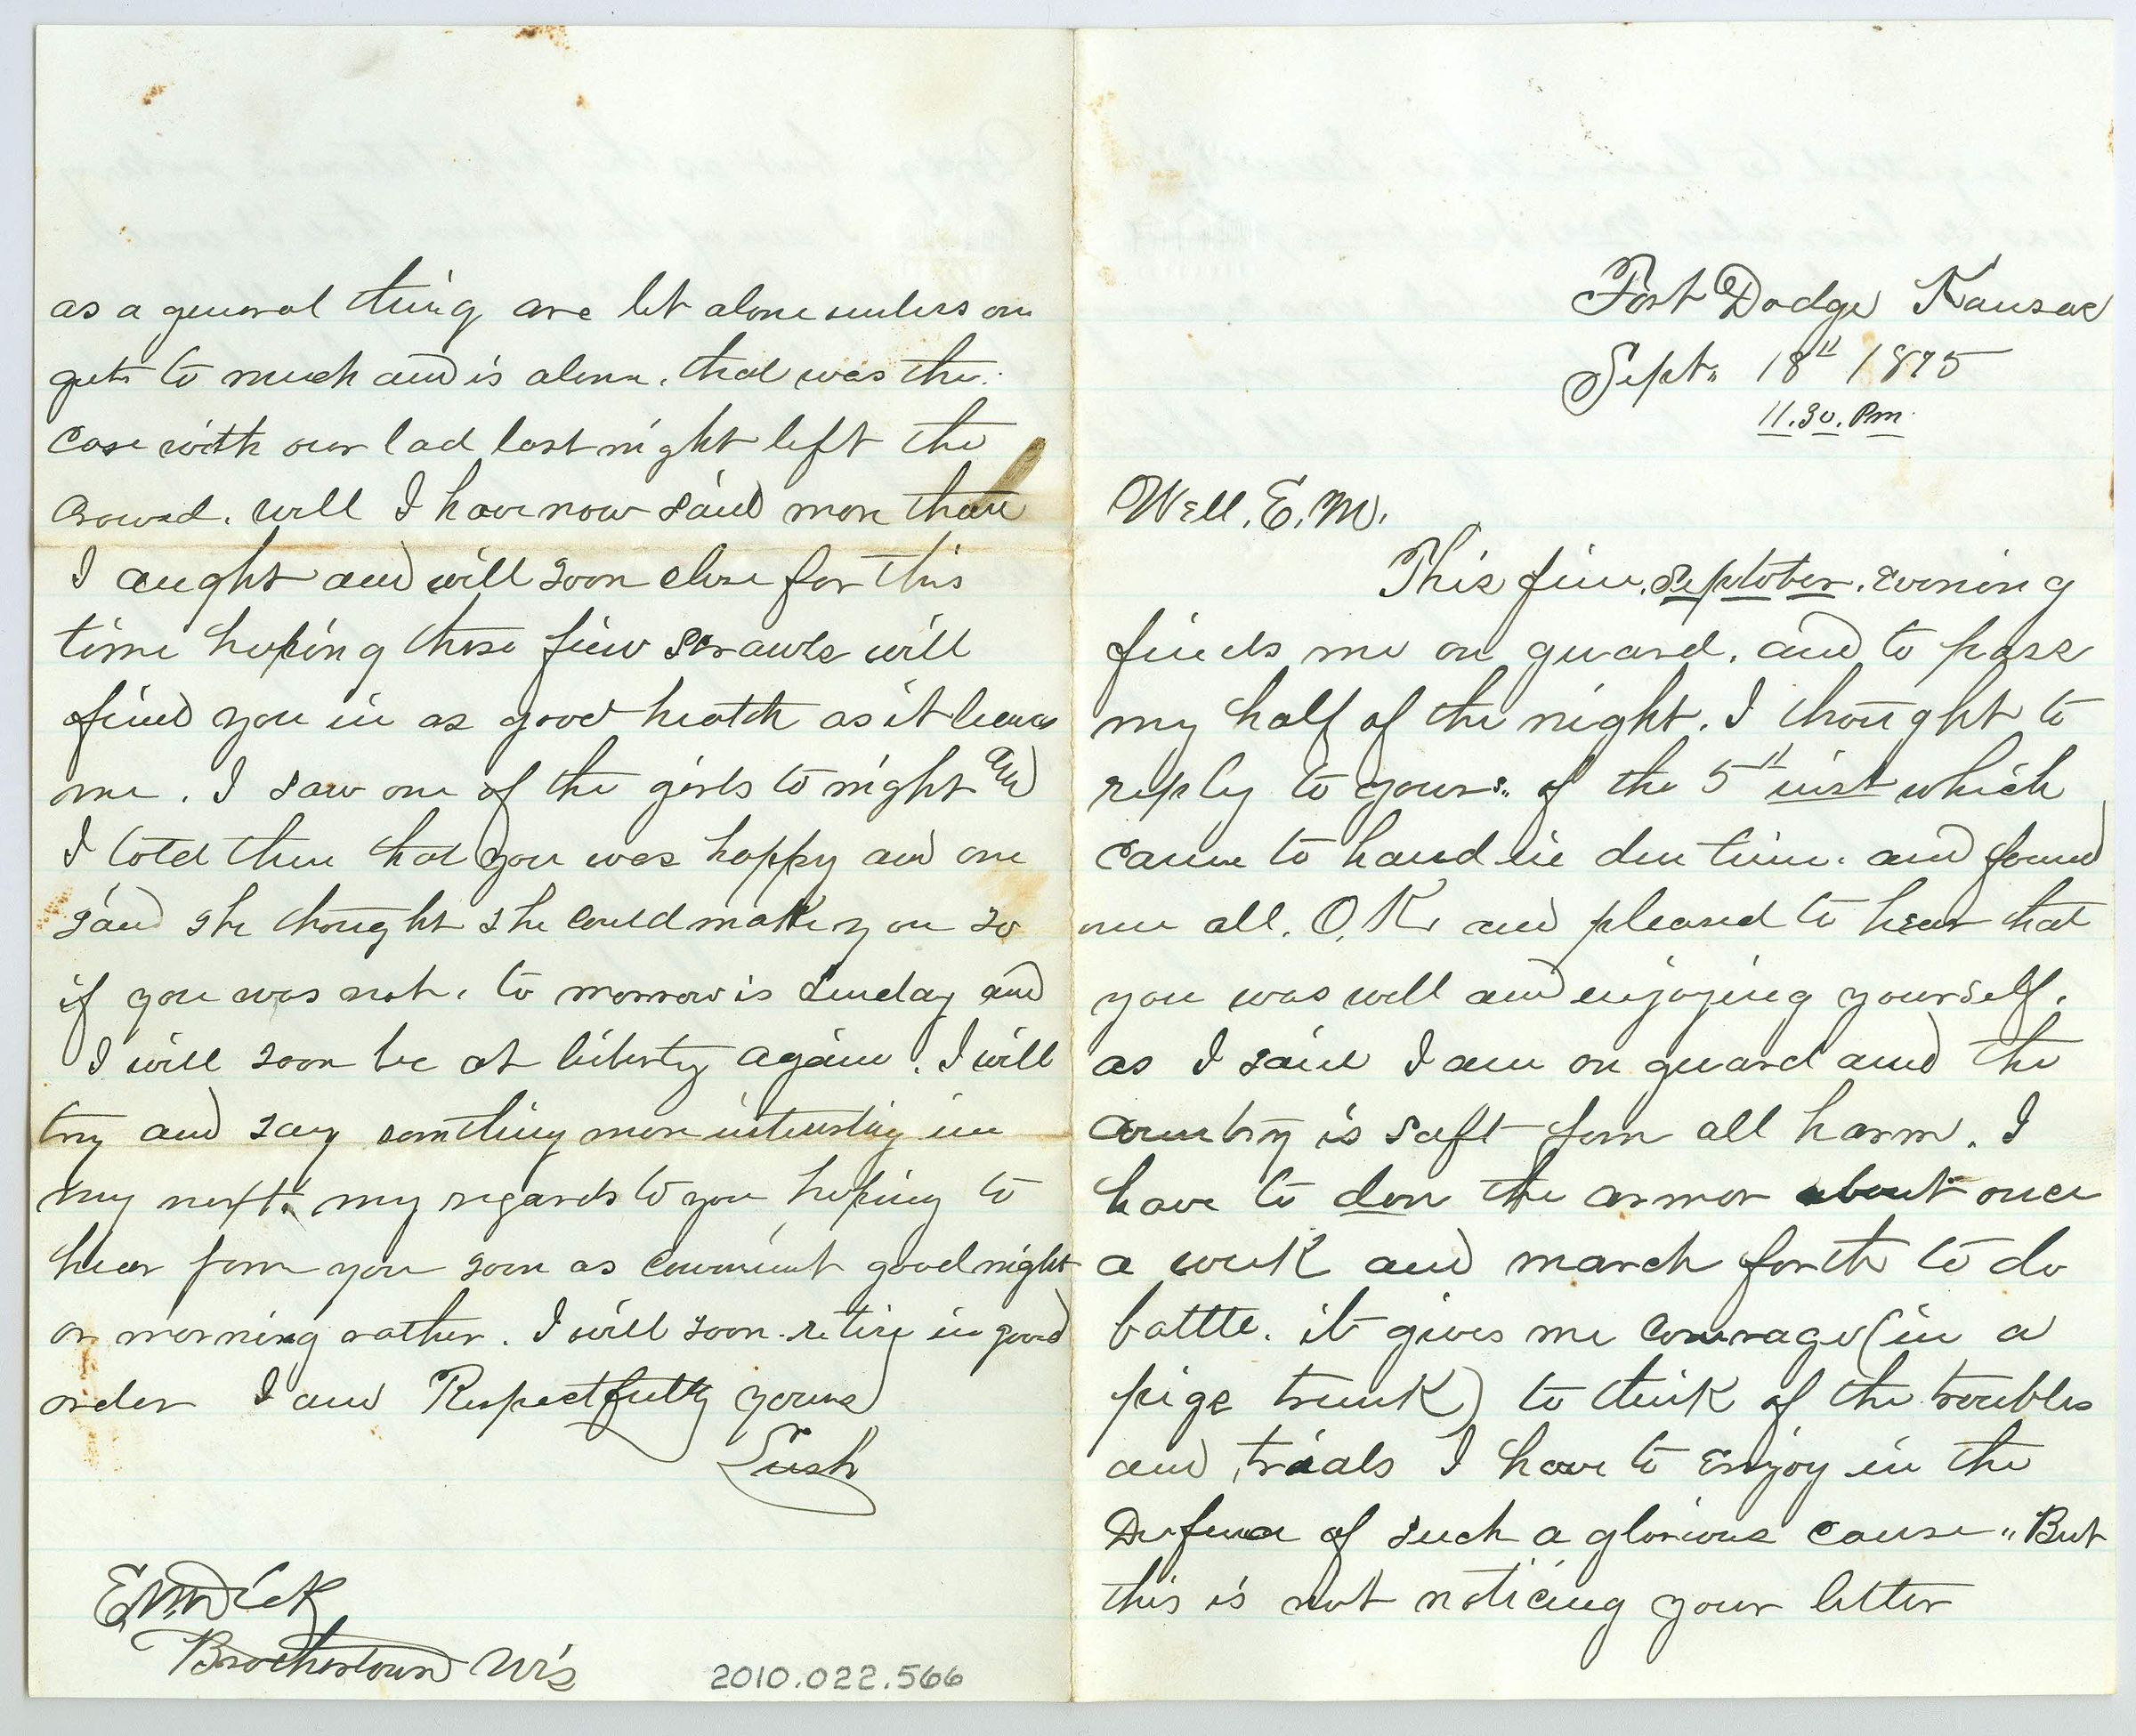 Fort Dodge Kansas
Sept. 18th 1875
11.30. Pm
Well. E. M.
This fine. Septober. evening
finds me on guard. and to pass
my half of the night. I thought to
reply to yours. of the 5th inst which
came to hand in due time. and found
me all. O. K. and pleased to hear that
you was well and enjoying yourself.
as I said I am on guard and the
country is saft form all harm. I
have to don the armor about once
a week and march forth to do
battle. it gives me courage (in a
pigs trunk) to think of the troubles
and trials I have to Enjoy in the
Defence of such a glorious cause " But
this is not noticing your letter
as a general thing are let alone unless one
gets to much and is alone. that was the
case with our lad last night left the
crowd. well I have now said more than
I aught and will soon close for this
time hoping these few scrawls will
find you in as good health as it leaves
me. I saw one of the girls to night and
I told them that you was happy and one
said she thought she could make you so
if you was not. to morrow is Sunday and
I will soon be at liberty again. I will
try and say somthing more intersting in
my next. my regards to you hoping to
hear form you soon as convenient good night
or morning rather. I will soon retire in good
order I am Respectfully yours
Lush
E M Dick
Brothertown Wis
2010.022.566